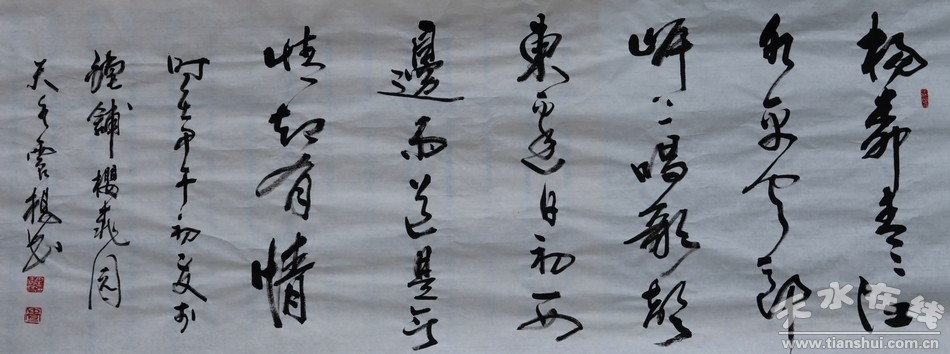 楊柳青々江
水平闻郎
岸上唱歌聲
東邊日初西
邊雨道是無
情却有情
时在甲午初夏於
鋪櫻桃园
天水楊书
天水在线
www.tianshui.com.cn